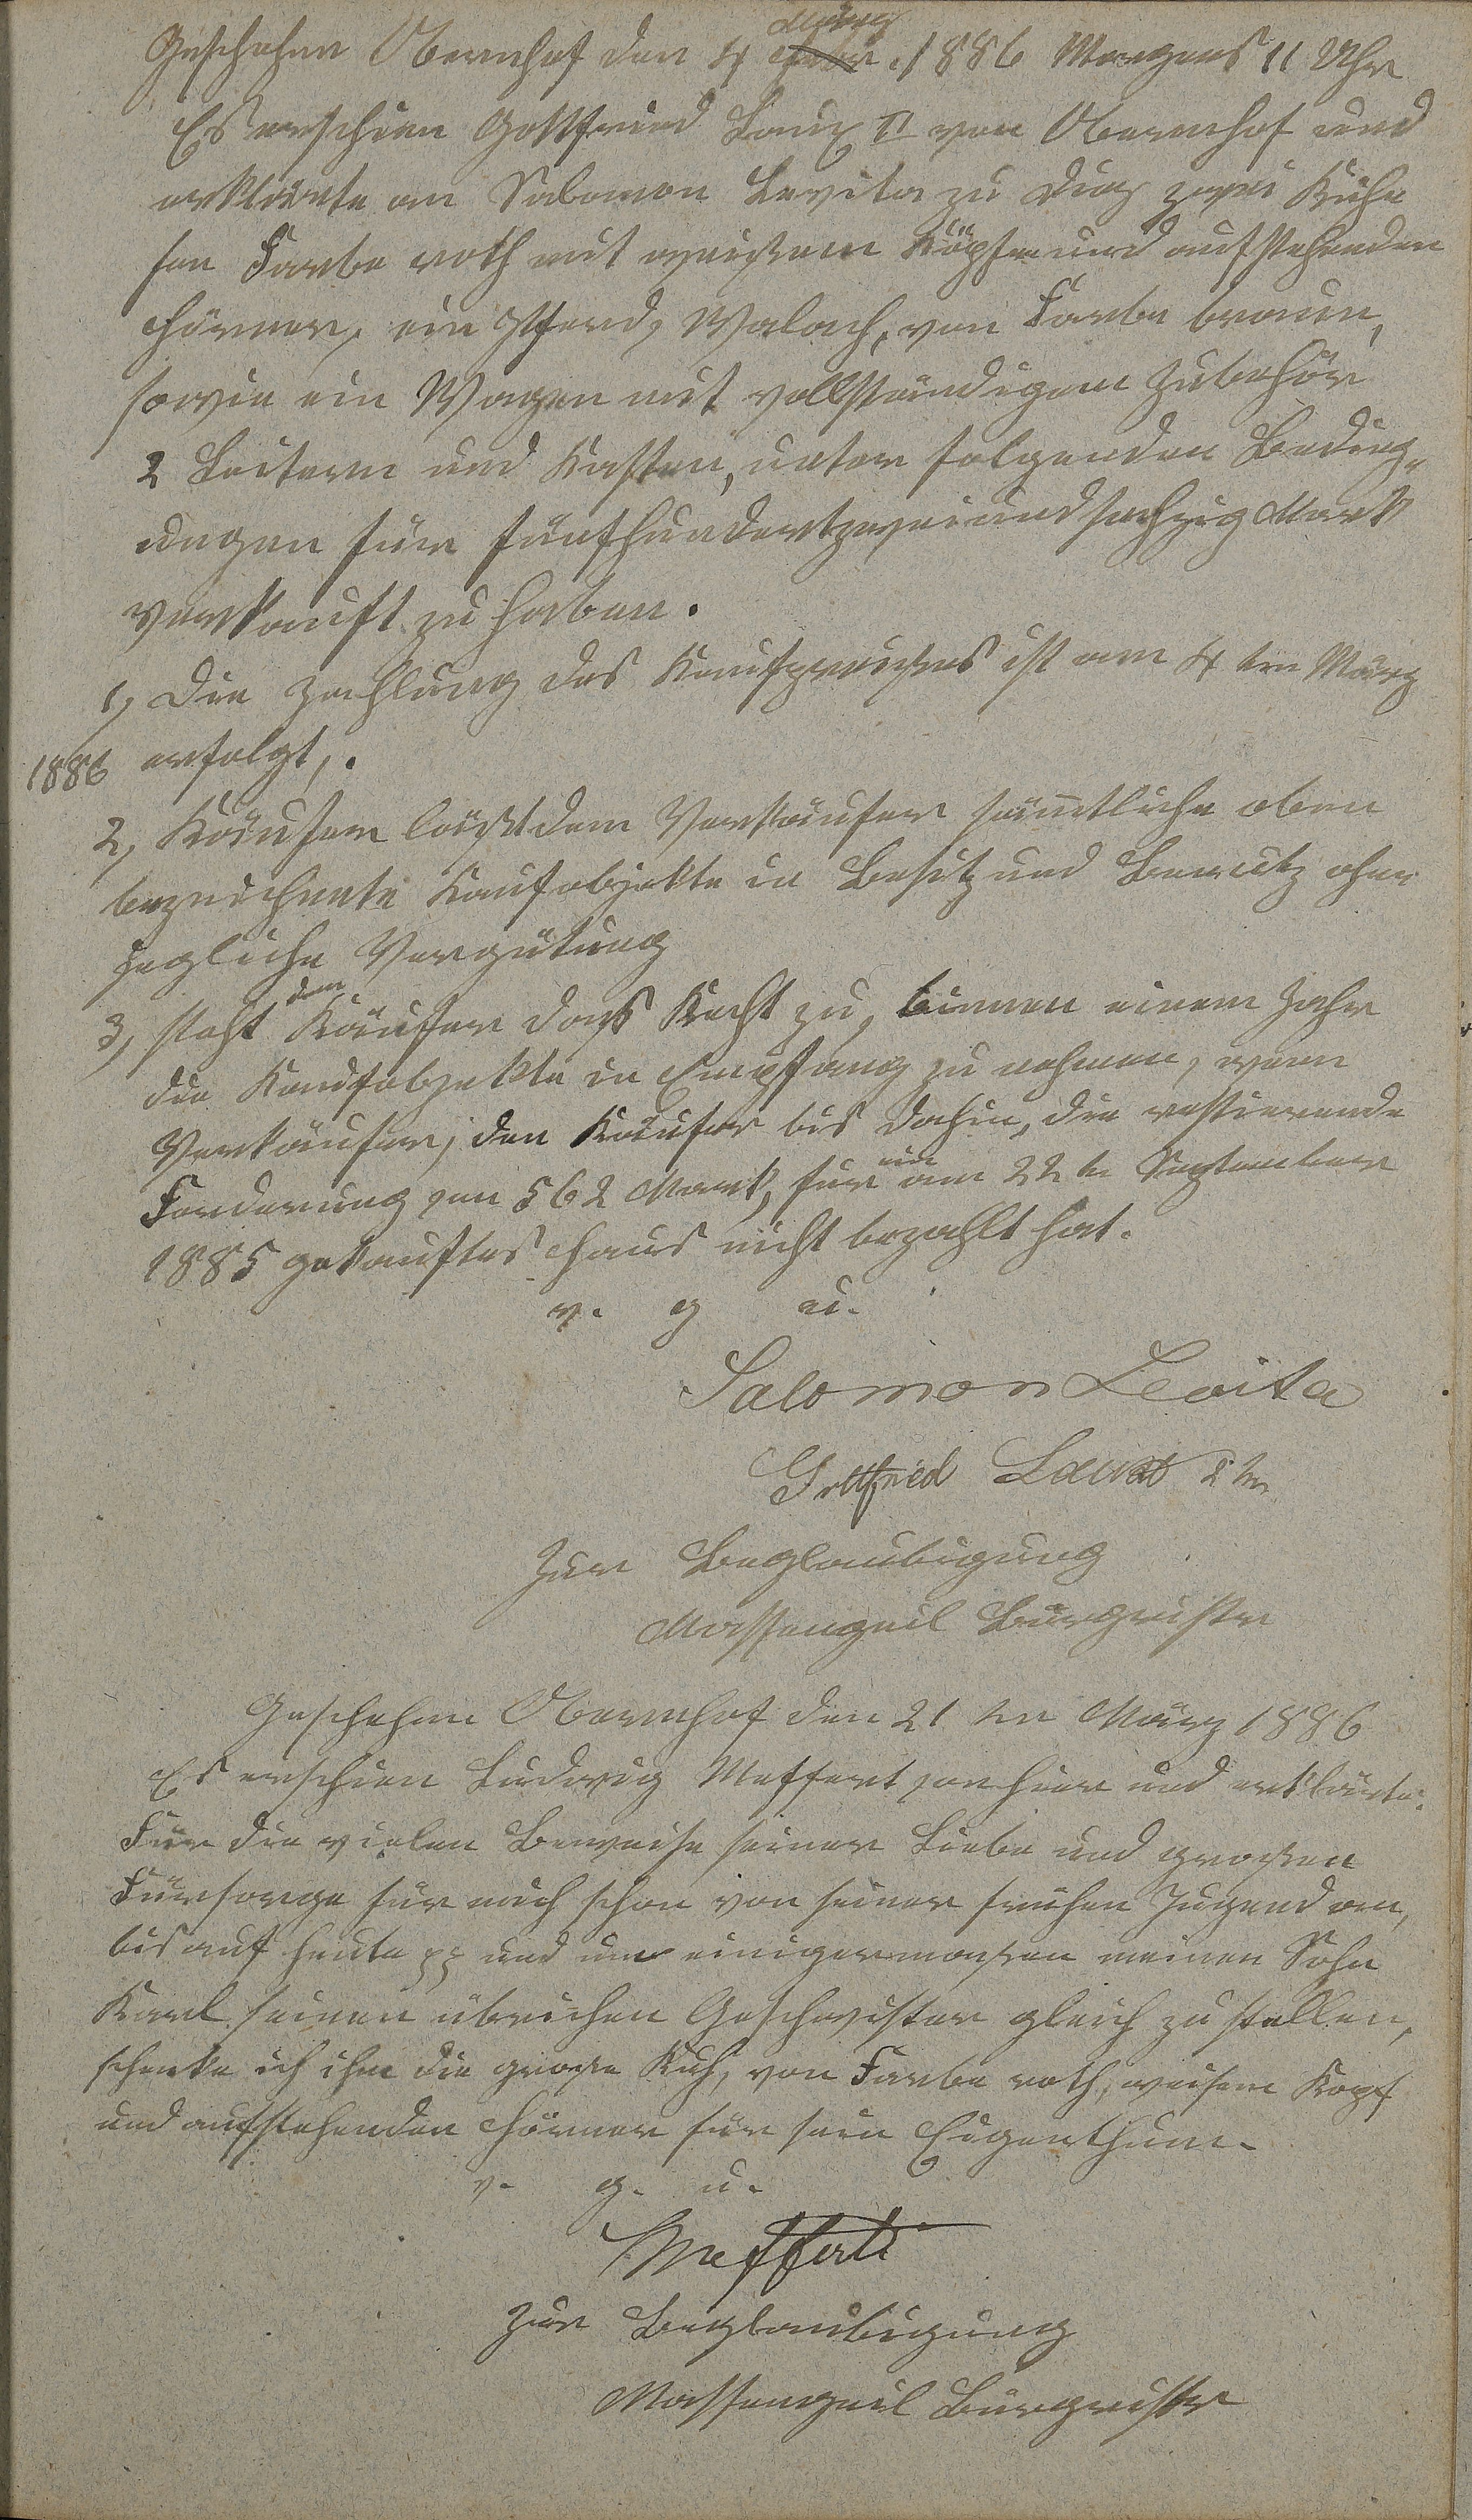 Geschehen Obernhof den 4 März 1886 Morgens 11 Uhr
Es erschien Gottfried Laux II von Obernhof und
erklärte an Salomon Levita zu Diez zwei Kühe
Farbe roth mit weißem Köpfe und aufstehenden
Hörner, ein Pferd, Walach, von Farbe braun,
sowie ein Wagen mit vollständigem Zubehör
2 Leitern und Kasten, unter folgenden Beding-
ungen für fünfhundertzweiundsechzig Mark
verkauft zu haben.
1, Die Zahlung des Kaufpreises ist am 4 ten März
1886 erfolgt,.
2, Käufer läßt dem Verkäufer sämtliche oben
bezeichnete Kaufobjekte in Besitz und Benutz ohne
jegliche Vergütung
3, steht dem Käufer das Recht zu, binnen einem Jahr
die Kaufobjekte in Empfang zu nehmen, wenn
Verkäufer, den Käufer bis dahin, die restierende
Forderung von 562 Mark, für ein am 22 te September
1885 gekauftes Haus nicht bezahlt hat.
v. g u.
Salomon Levita
Gottfried Laux 2 te
Zur Beglaubigung
Massengeil Bürgmstr
Geschehen Obernhof den 21 ten März 1886
Es erschien Ludwig Meffert von hier und erklärte.
Für die vielen Beweise seiner Liebe und großen
Fürsorge für mich schon von seiner frühen Jugend an,
bis auf heute pp und um einigermaßen meinen Sohn
Karl seinen übrichen Geschwister gleich zu stellen,
schenke ich ihm die große Kuh, von Farbe roth, weisem Kopf
und aufstehenden Hörner für sein Eigenthum.
v. g. u.
Meffert
Zur Beglaubigung
Massengeil Bürgmstr